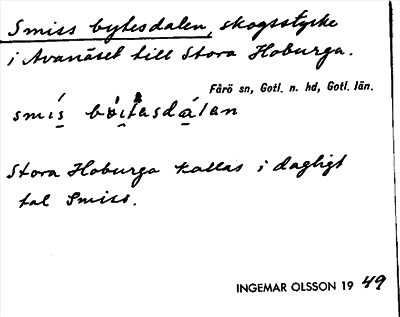 Smiss bytesdalen, skogsstycke
i Avanäset till Stora Hoburga.
Fårö sn, Gotl. n. hd, Gotl. län.
smís dálan
Stora Hoburga kallas i dagligt
tal Smiss.
INGEMAR OLSSON 19 49